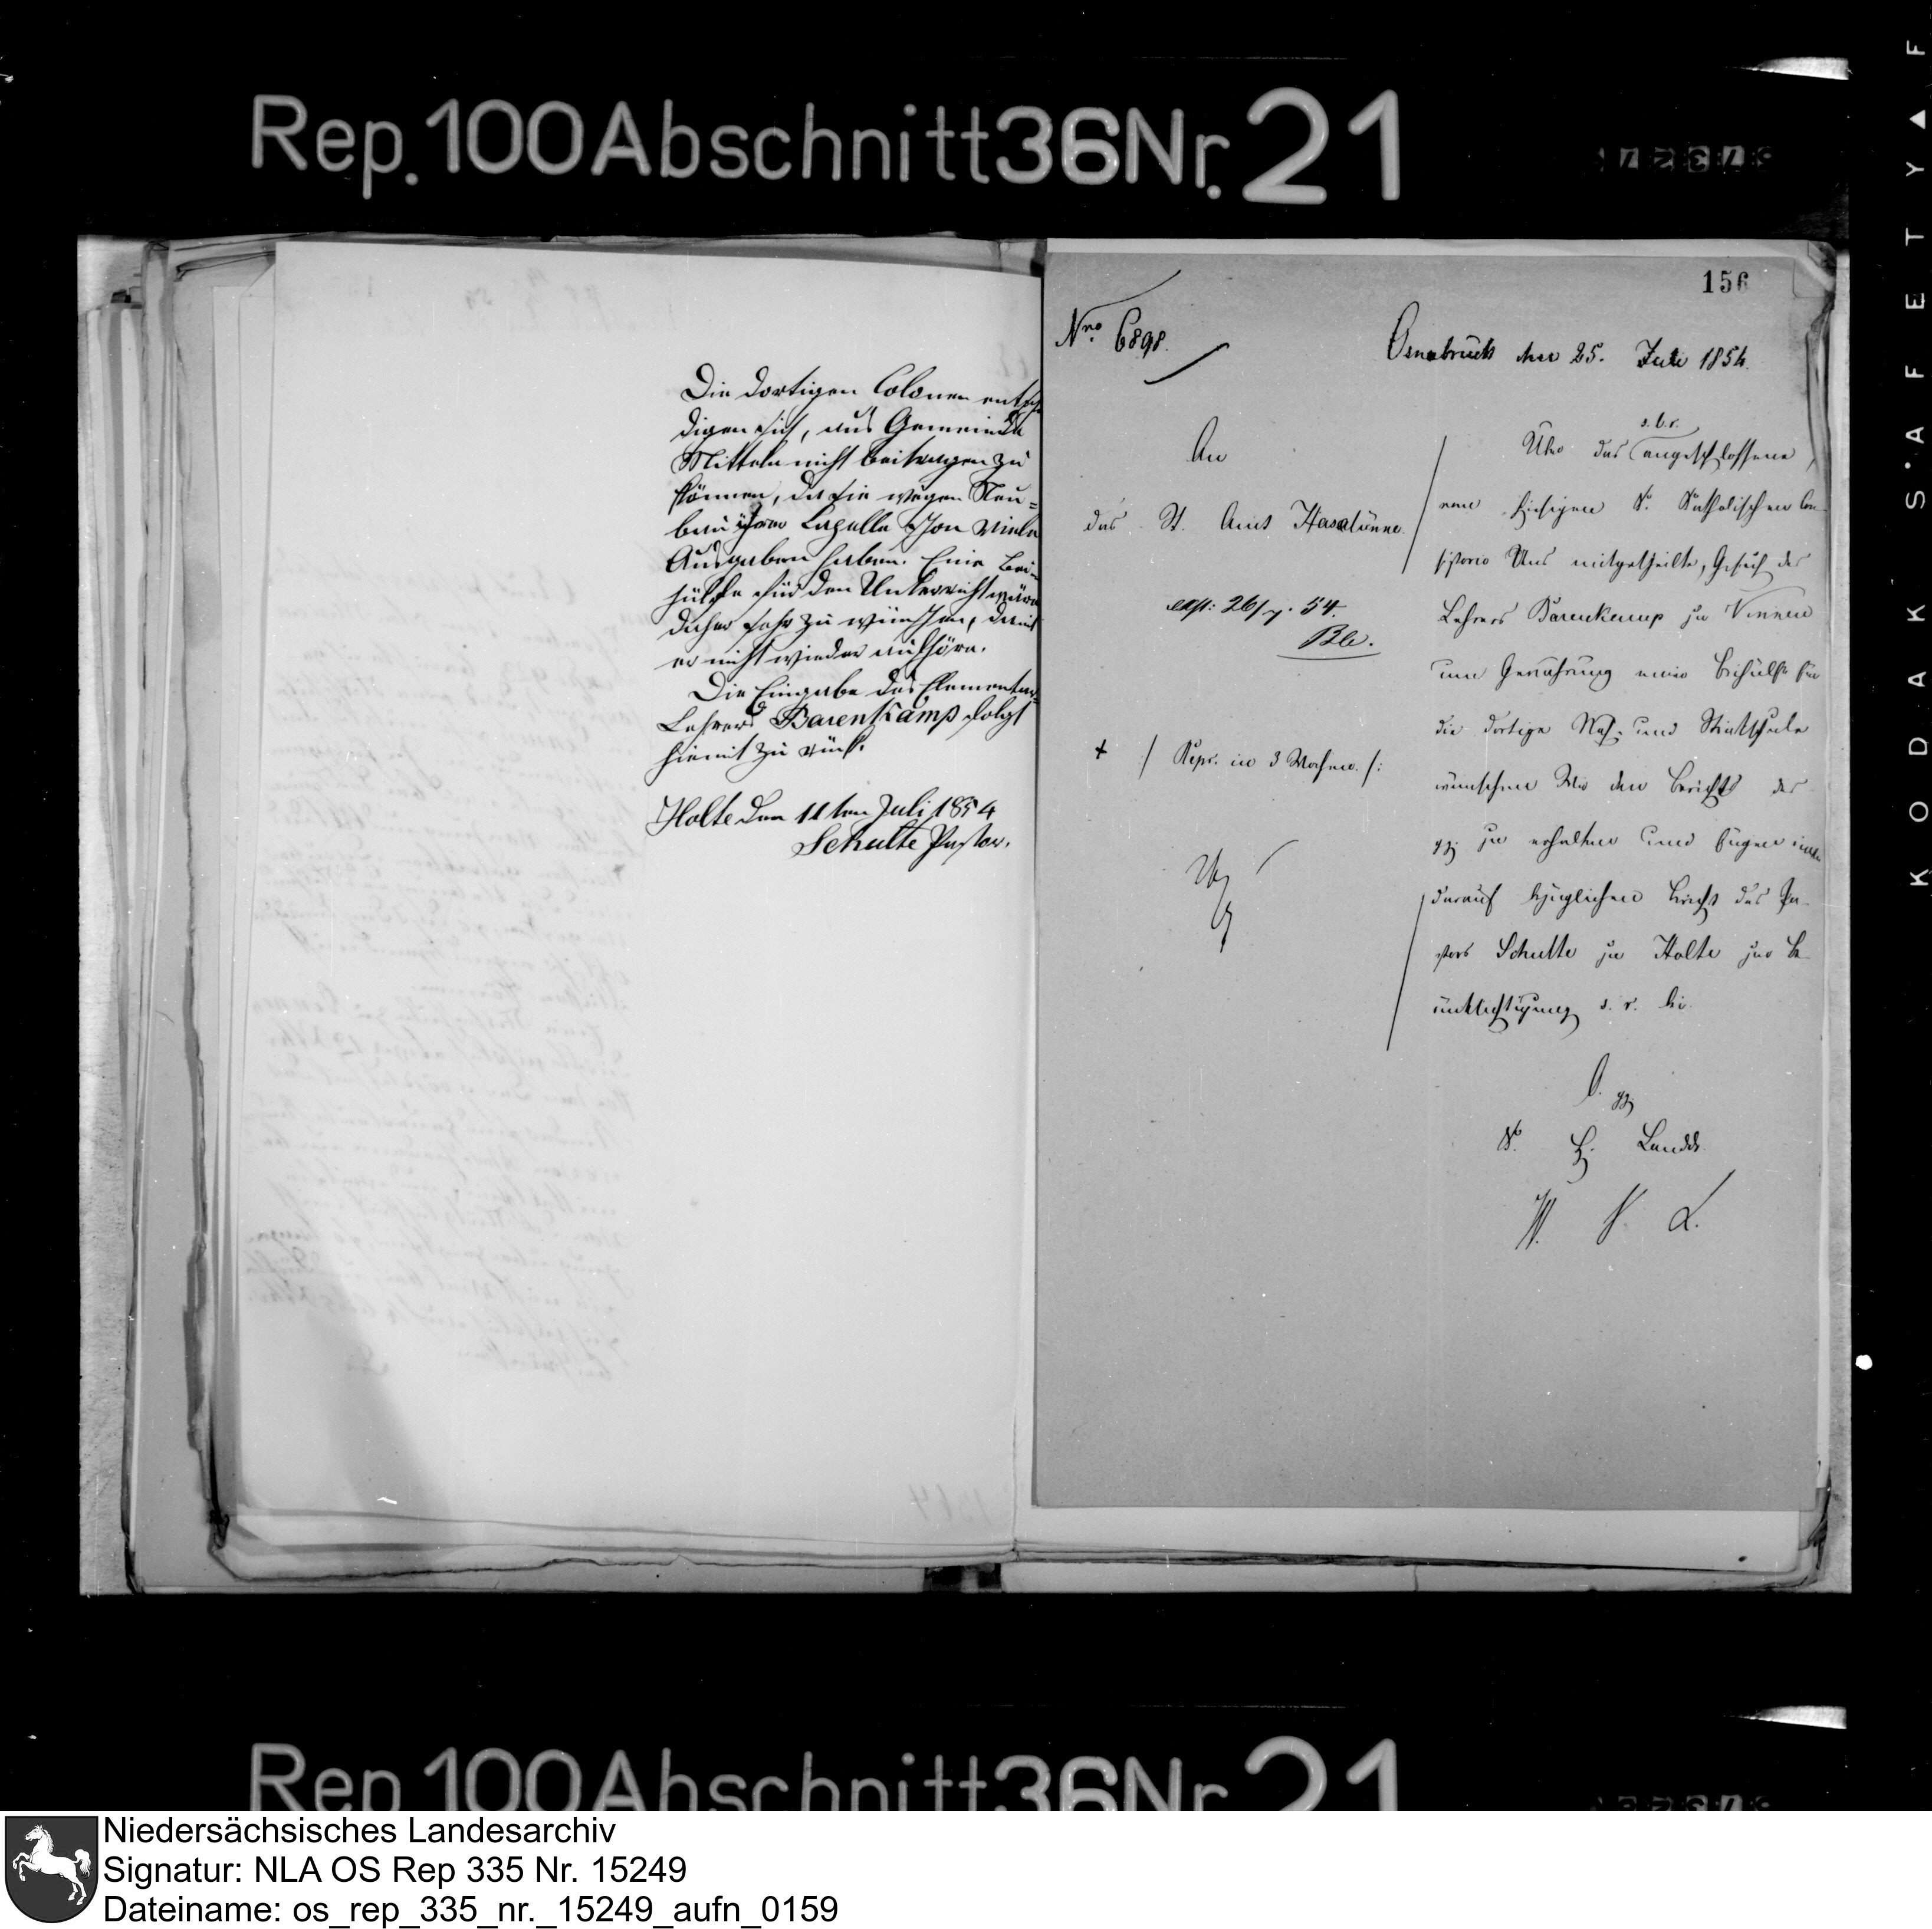 Rep. 100 Abschnitt 36 Nr. 21
Die dortigen Colonen entschul
digen sich, aus Gemeinde
Mitteln nicht beitragen zu
können, da sie wegen Neu-
bau ihrer Capelle schon viele
Ausgaben haben. Eine Bei-
hülfe für den Unterricht wäre
daher sehr zu wünschen, damit
er nicht wieder aufhöre.
Die Eingabe des Elementar-
Lehrers Barenkamp folgt
hiemit zurück.
Holte den 11ten Juli 1854
Schulte Pastor.
156
Nro. 6898.
Osnabrück den 25. Juli 1854.
An
das St. Amt Haselünne.
exp: 26/7. 54.
Ble.
+ /: Repr. in 3 Wochen. /:
s. b. r.
Über das angeschlossene,
vom hiesigen K. Katholischen Con-
sistorio Uns mitgetheilte, Gesuch des
Lehrers Barenkamp zu Vinnen
um Gewährung einer Beihülfe für
die dortige Näh- und Strickschule
wünschen Wir den Bericht des
zu erhalten und fügen
darauf bezüglichen Bericht des Pa-
stors Schulte zu Holte zur Be-
rücksichtigung s. r. bei.
K. H. Landdr.
L.
Rep 100 Abschnitt 36 Nr. 21
KODAK SAFETY F
Niedersächsisches Landesarchiv
Signatur: NLA OS Rep 335 Nr. 15249
Dateiname: os_rep_335_nr._15249_aufn_0159